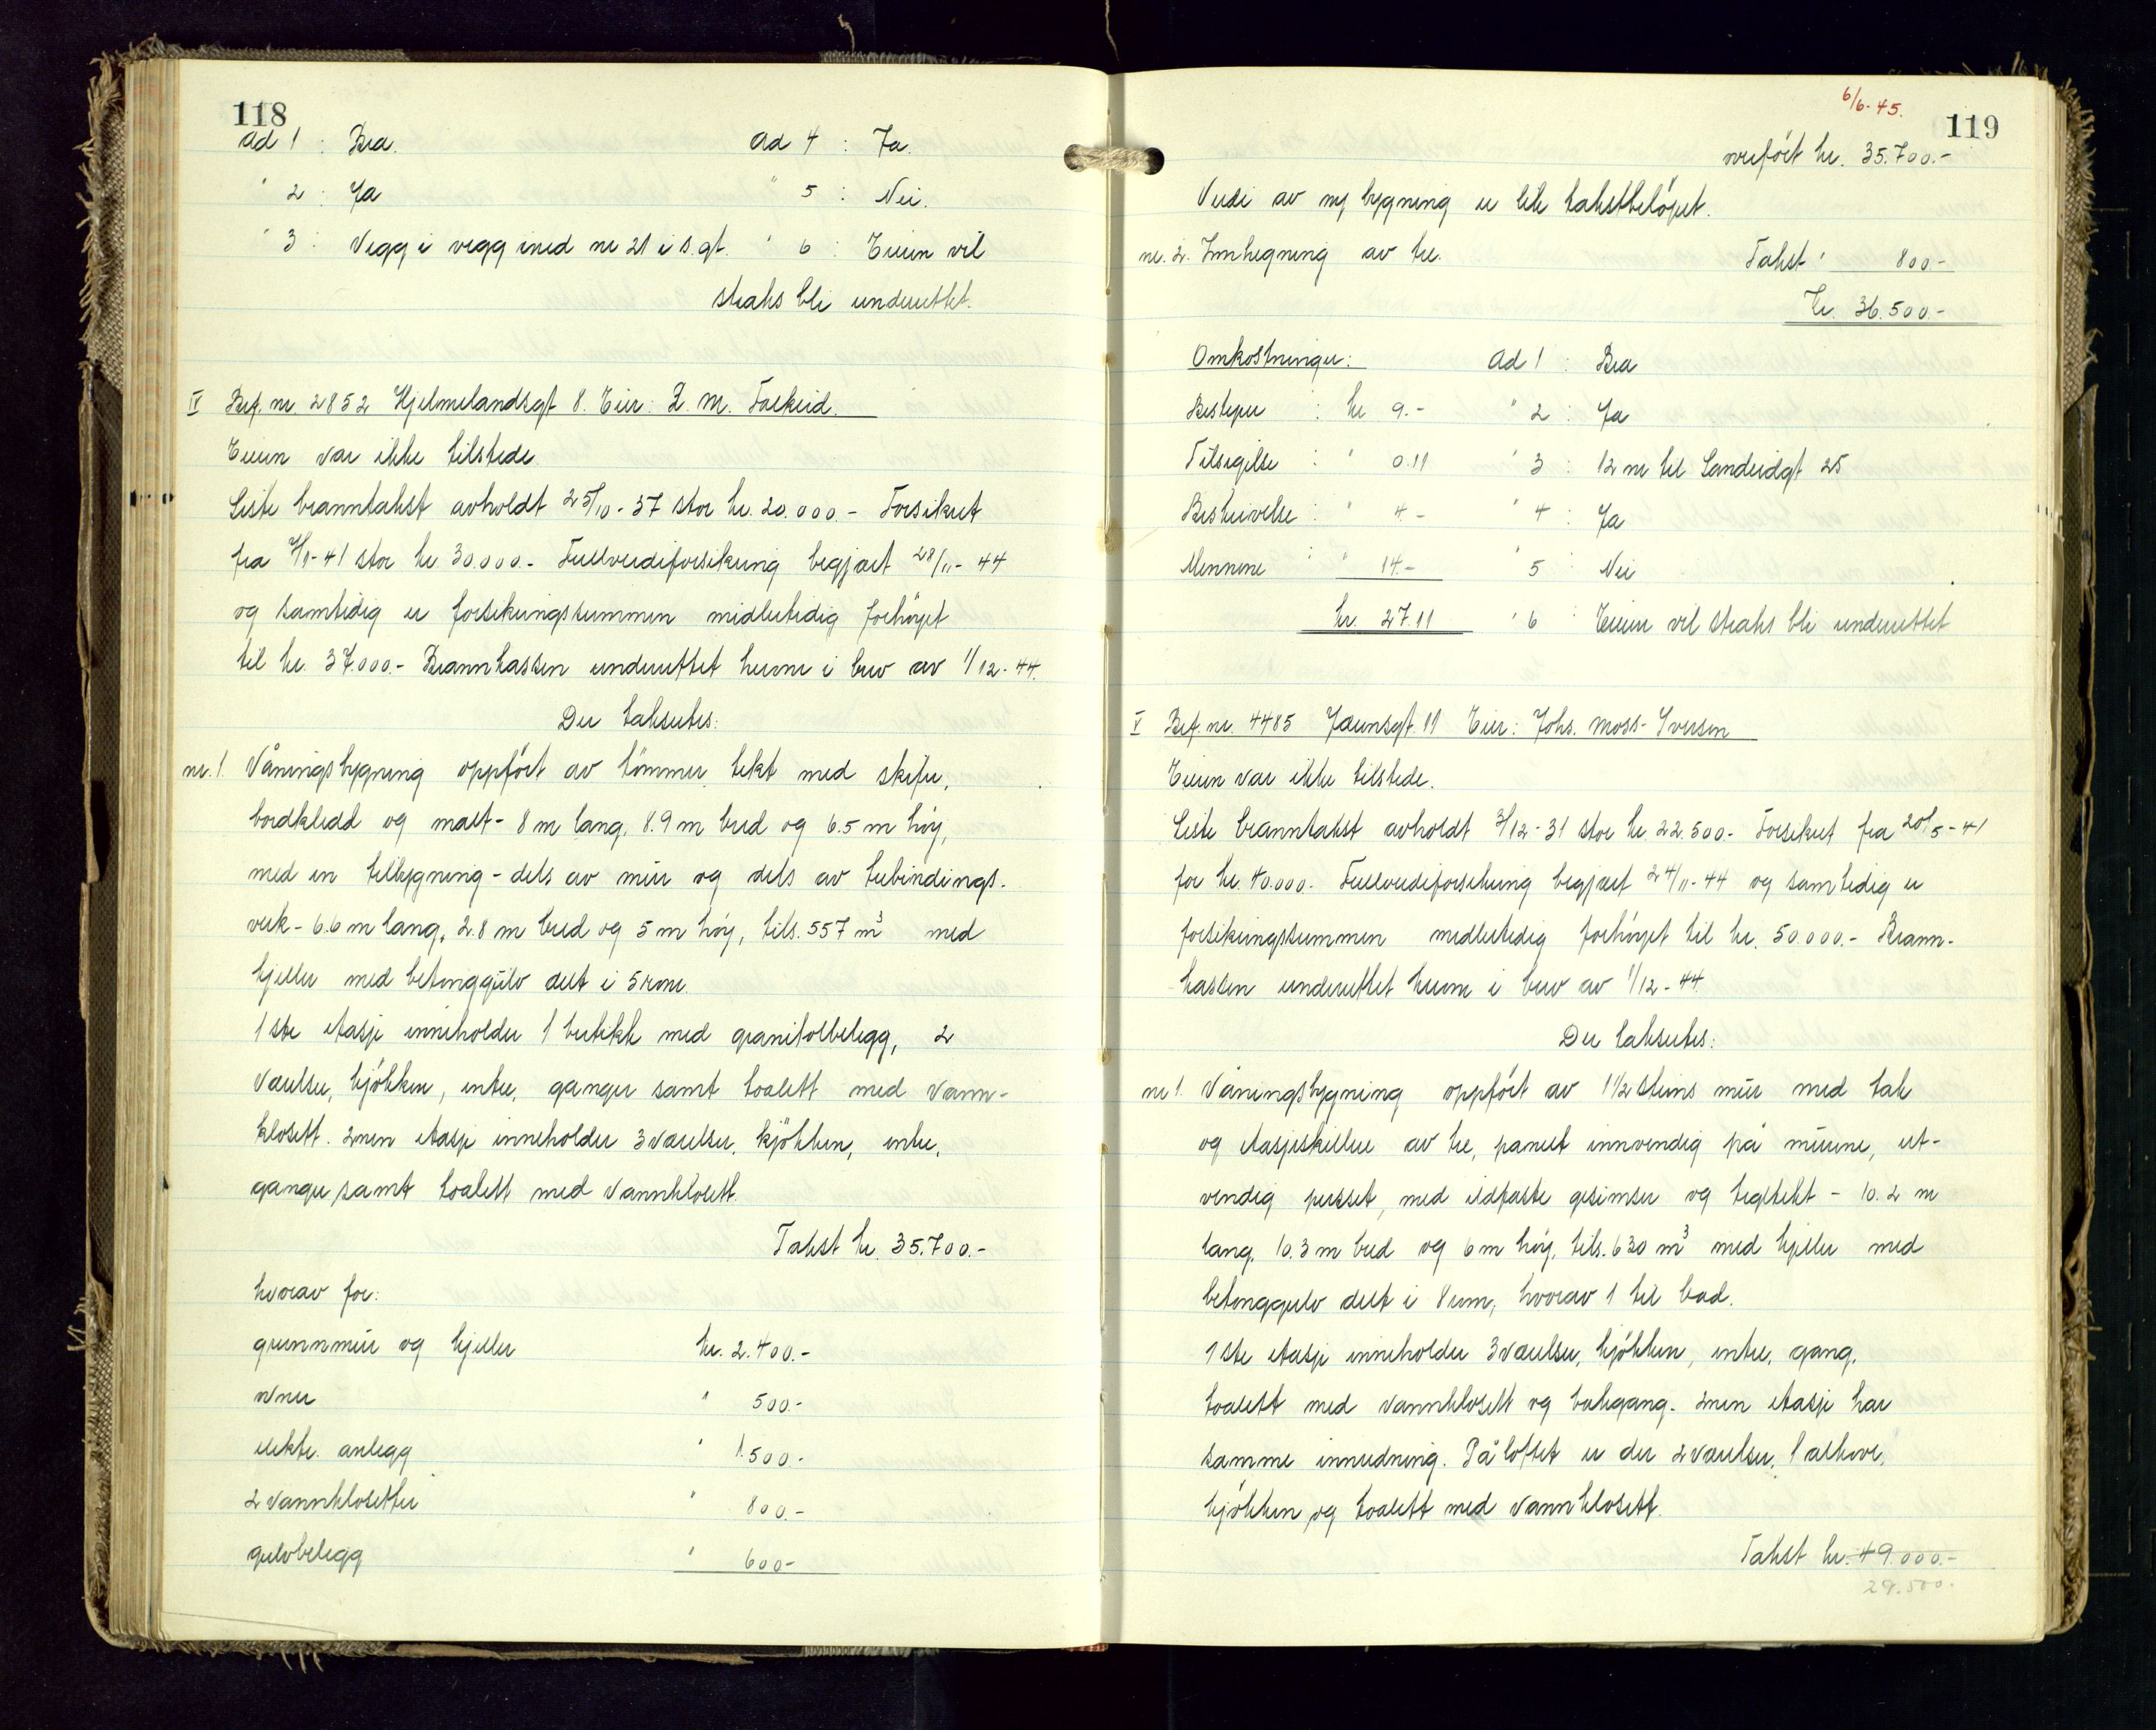 118
Ad 1 : Bra. Ad 4 : Ja.
" 2 : Ja " 5 : Nei.
" 3 : Vegg i vegg med nr 21 i s.gt. " 6 : Eieren vil
straks bli underrettet.
IV Brf. nr. 2852 Hjelmelandsgt 8. Eier: L. M. Torkeid.
Eieren var ikke tilstede.
Siste branntakst avholdt 25/10-37 stor kr. 20.000.- Forsikret
fra 7/11-41 stor kr. 30.000.- Fullverdiforsikring begjært 28/11-44
og samtidig er forsikringssummen midlertidig forhöyet
til kr. 37.000.- Brannkassen underrettet herom i brev av 1/12-44.
Der takseres:
nr. 1. Våningsbygning oppfört av tömmer, tekt med skifer,
bordkledd og malt - 8 m lang, 8.9 m bred og 6.5 m höy,
med en tilbygning - dels av mur og dels av utbindings-
verk - 6.6 m lang, 2.8 m bred og 5 m höy, tils. 557 m³ med
kjeller med betonggulv delt i 5 rom.
1ste etasje inneholder 1 butikk med granitolbelegg, 2
værelser, kjökken, entre, ganger samt toalett med vann-
klosett. 2nen etasje inneholder 3 værelser, kjökken, entre,
ganger samt toalett med vannklosett.
Takst kr. 35.700.-
hvorav for:
grunnmur og kjeller kr. 2.400.-
ovner " 500.-
elektr. anlegg " 1.500.-
2 vannklosetter " 800.-
gulvbelegg " 600.-
6/6-45.
119
overfört kr. 35.700.-
Verdi av ny bygning er lik takstbelöpet.
nr. 2. Innhegning av tre. Takst " 800.-
Kr. 36.500.-
Omkostninger: Ad 1 : Bra
Bestyrer : kr 9.- " 2 : Ja
Tilsigelse : " 0.11 " 3 : 12 m til Sandeidgt 25
Beskrivelse : " 4.- " 4 : Ja
Mennene : " 14.- " 5 : Nei
kr. 27.11 " 6 : Eieren vil straks bli underrettet
V Brf. nr. 4485 Jærensgt. 11 Eier: Johs. Moss-Iversen
Eieren var ikke tilstede.
Siste branntakst avholdt 3/12-31 stor kr. 22.500.- Forsikret fra 20/5-41
for kr. 40.000.- Fullverdiforsikring begjært 24/11-44 og samtidig er
forsikringssummen midlertidig forhöyet til kr. 50.000.- Brann-
kassen underrettet herom i brev av 1/12-44.
Der takseres:
nr 1. Våningsbygning oppfört av 1 1/2 steins mur med tak
og etasjeskiller av tre, panelt innvendig på murene, ut-
vendig pusset, med ildfaste gesimser og tegltekt - 10.2 m
lang, 10.3 m bred og 6 m höy, tils. 630 m³ med kjeller med
betonggulv delt i 8 rom, hvorav 1 til bad.
1ste etasje inneholder 3 værelser, kjökken, entre, gang,
toalett med vannklosett og bakgang. 2nen etasje har
samme innredning. På loftet er der 2 værelser, 1 alkove,
kjökken og toalett med vannklosett.
Takst kr. 49.000.-
29.500.